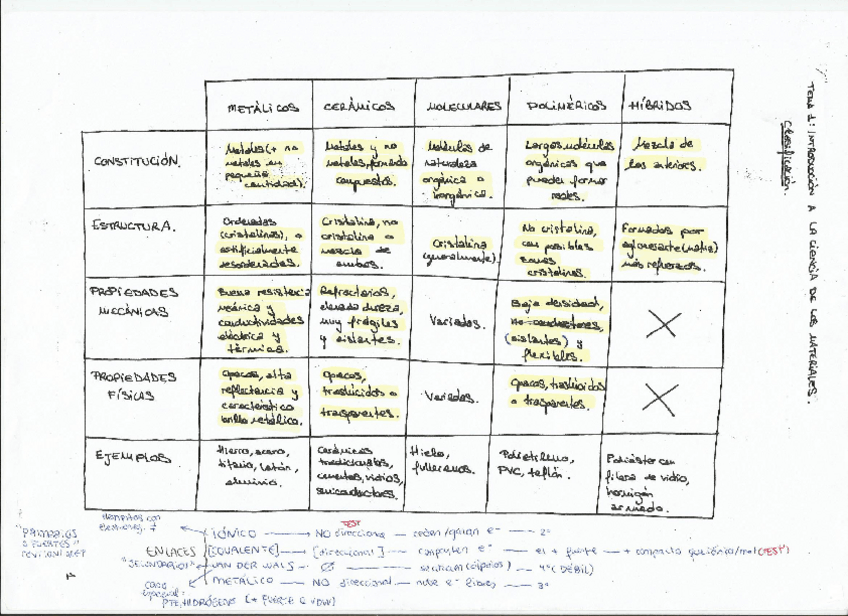 TEMA 1: INTRODUCCIÓN A LA CIENCIA DE LOS MATERIALES.
Clasificación.
METÁLICOS CERÁMICOS MOLECULARES POLIMÉRICOS HÍBRIDOS
CONSTITUCIÓN.
Metales (+ no
metales en
pequeña
cantidad).
Metales y no
metales, formando
compuestos.
Moléculas de
naturaleza
orgánica o
inorgánica.
Largas moléculas
orgánicas que
pueden formar
redes.
Mezcla de
los anteriores.
ESTRUCTURA.
Ordenadas
(cristalinas), o
artificialmente
desordenadas.
Cristalina, no
cristalina o
mezcla de
ambos.
Cristalina
(generalmente)
No cristalina,
con posibles
zonas
cristalinas.
Formados por
aglomerante (matriz)
más refuerzos.
PROPIEDADES
MECÁNICAS
Buena resistencia
mecánica y
conductividades
eléctrica y
térmica.
Refractarios,
elevada dureza,
muy frágiles
y aislantes.
Variadas.
Baja densidad,
no conductores,
(aislantes) y
flexibles.
PROPIEDADES
FÍSICAS
Opacos, alta
reflectancia y
característico
brillo metálico.
Opacos,
traslúcidos o
trasparentes.
Variadas.
Opacos, traslúcidos
o trasparentes.
EJEMPLOS
Hierro, acero,
titanio, latón,
aluminio.
Cerámicos
tradicionales,
cementos, vidrios,
semiconductores.
Hielo,
fullerenos.
Polietileno,
PVC, teflón.
Poliéster con
fibra de vidrio,
hormigón
armado.
TEST
IÓNICO NO direccional ceden/ganan e⁻ 2º
ENLACES [COVALENTE] [direccional] comparten e⁻ el + fuerte (TEST)
"SECUNDARIOS" VAN DER WALS ∅ (dipolos) 4º (DÉBIL)
METÁLICO NO direccional nube e⁻ libres 3º
caso
especial:
PTE. HIDRÓGENO (+ FUERTE Q VDW)